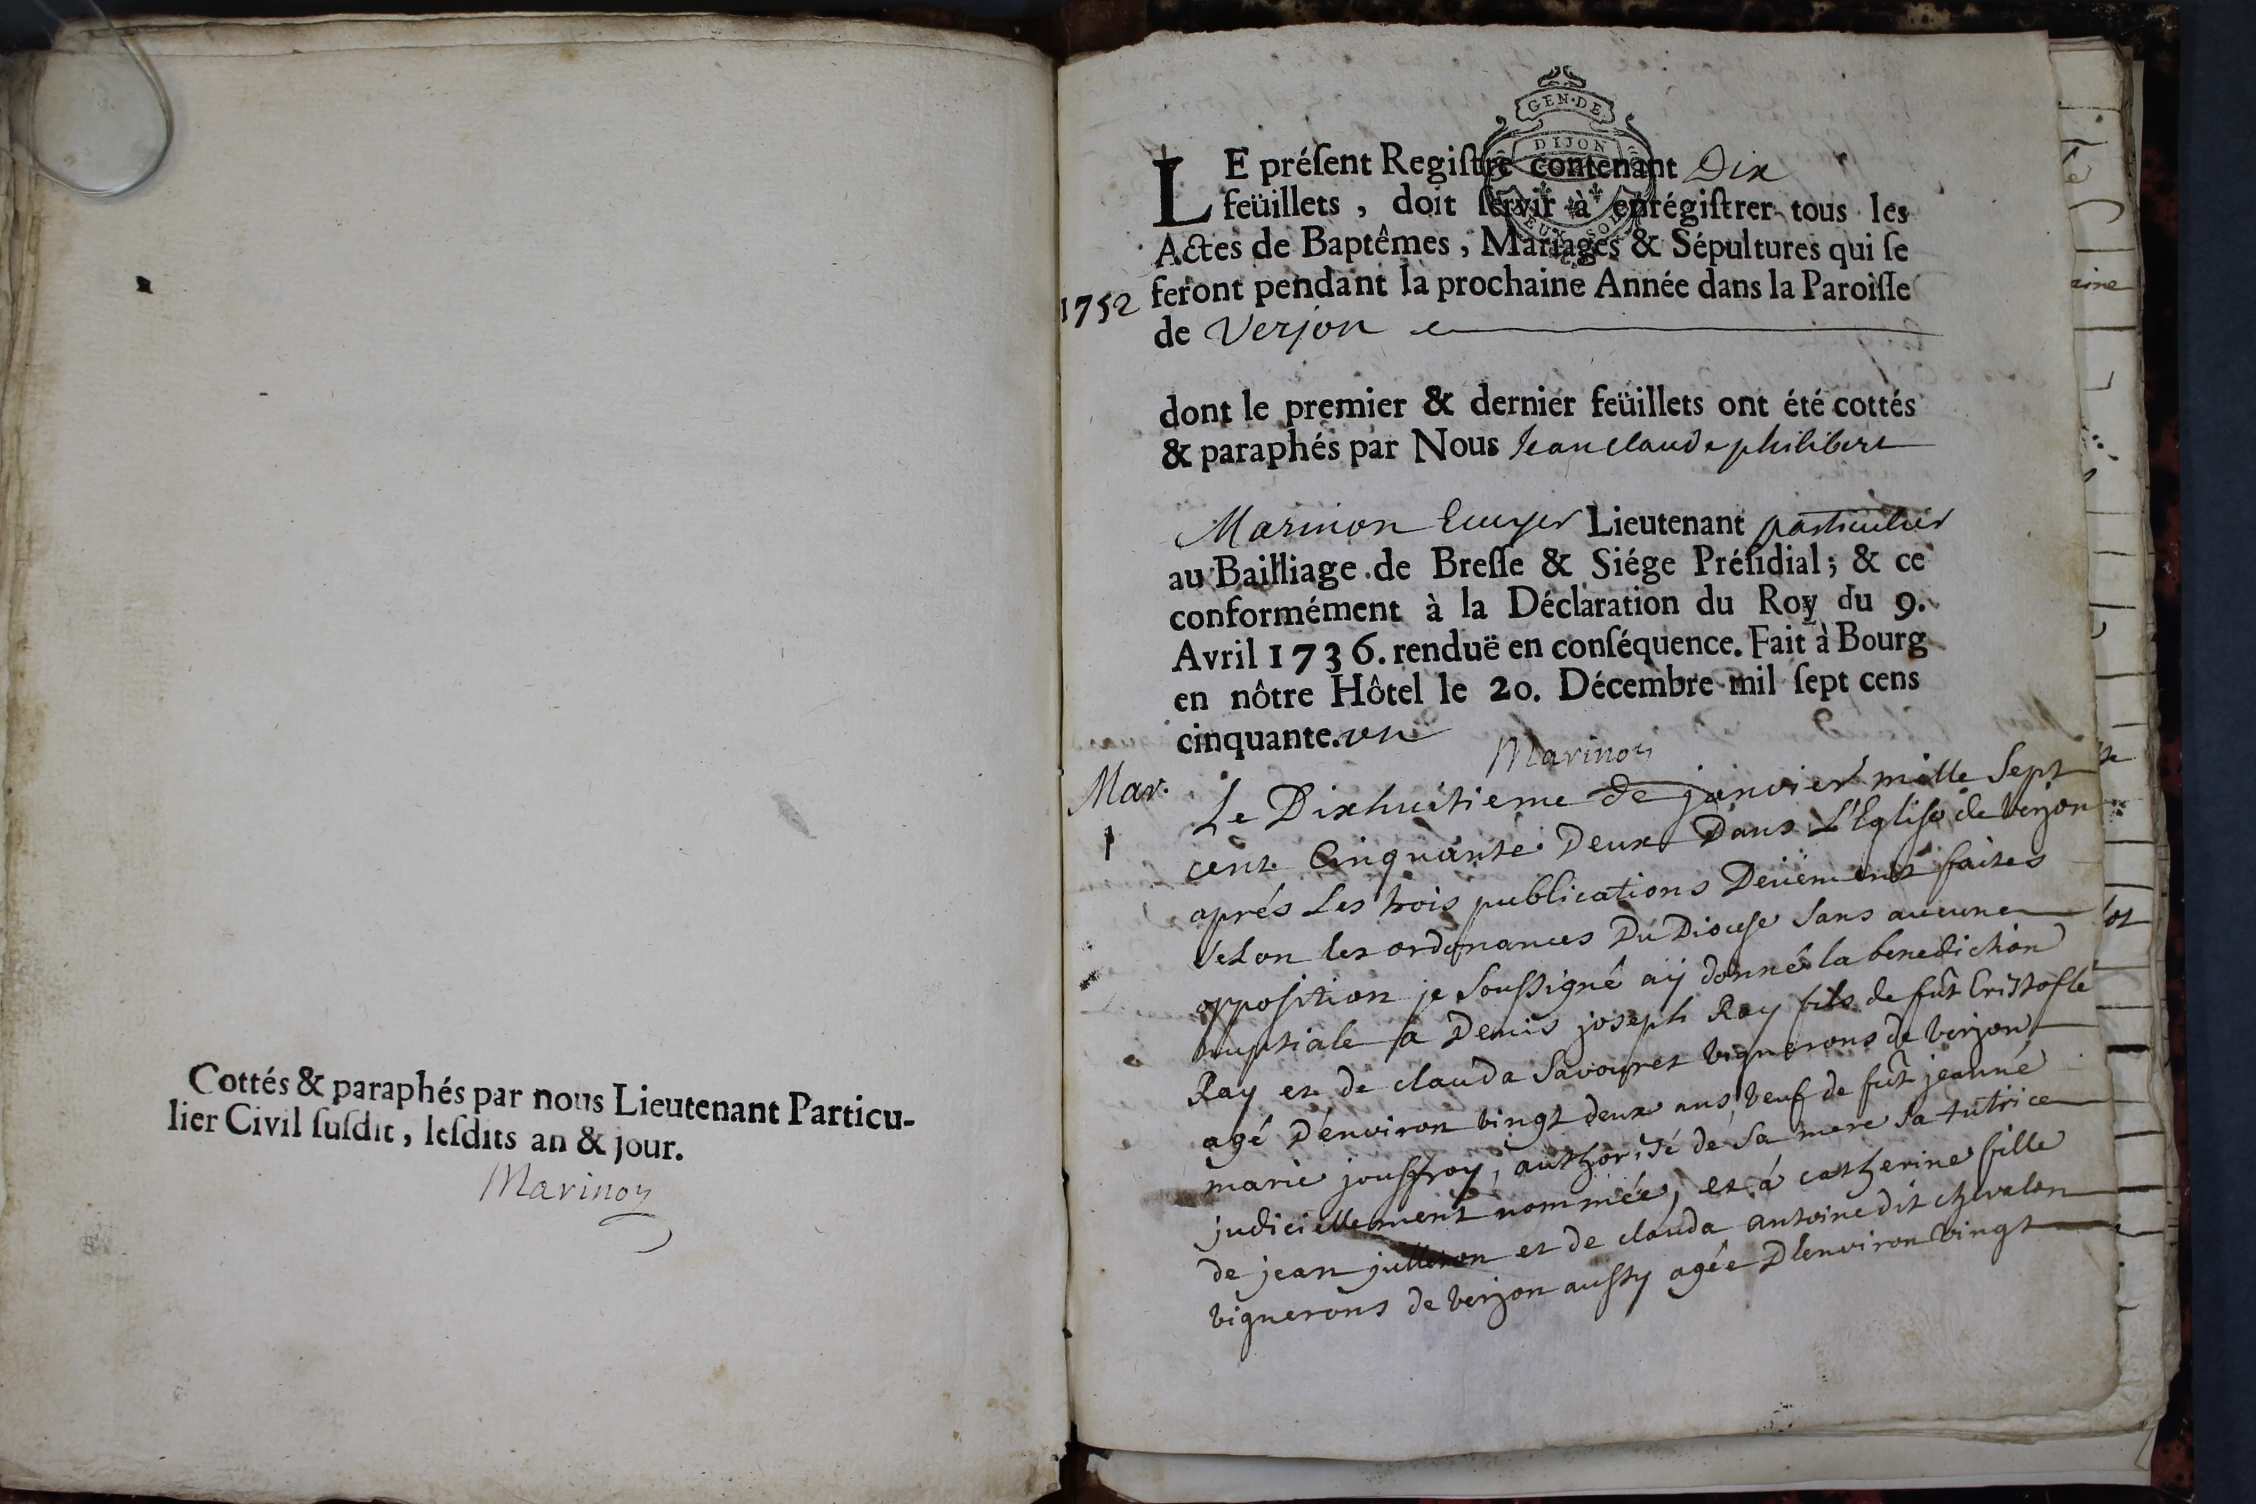 Cottés & paraphés par nous Lieutenant Particu-
lier Civil ſuſdit, leſdits an & jour.
Marinon
GEN·DE
DIJON
LE préſent Regiſtre contenant Dix
feüillets, doit ſervir à enrégiſtrer tous les
Actes de Baptêmes, Mariages & Sépultures qui ſe
1752 feront pendant la prochaine Année dans la Paroiſſe
de Verjon
dont le premier & dernier feüillets ont été cottés
& paraphés par Nous Jean claude philibert
Marinon Ecuyer Lieutenant particulier
au Bailliage de Breſſe & Siége Préſidial; & ce
conformément à la Déclaration du Roy du 9.
Avril 1736. renduë en conſéquence. Fait à Bourg
en nôtre Hôtel le 20. Décembre mil ſept cens
cinquante. un
Marinon
Mar.
1
Le Dixhuitieme de janvier mille Sept
cent Cinquante Deux Dans L'Eglise de verjon
aprés Les trois publications Deüement faites
selon les ordonances Du Diocese sans aucune
opposition je soussigné aÿ donné la benediction
nuptiale a Denis joseph Ray fils de fût Cristofle
Ray et de clauda Savouret vignerons de verjon
agé D'environ vingt deux ans, veuf de fût jeanne
marie jouffroy, authorisé de sa mere sa tutrice
judiciellement nommée, et á catherine fille
de jean julleron et de clauda antoine dit chevalon
vignerons de verjon aussy agée D'environ vingt